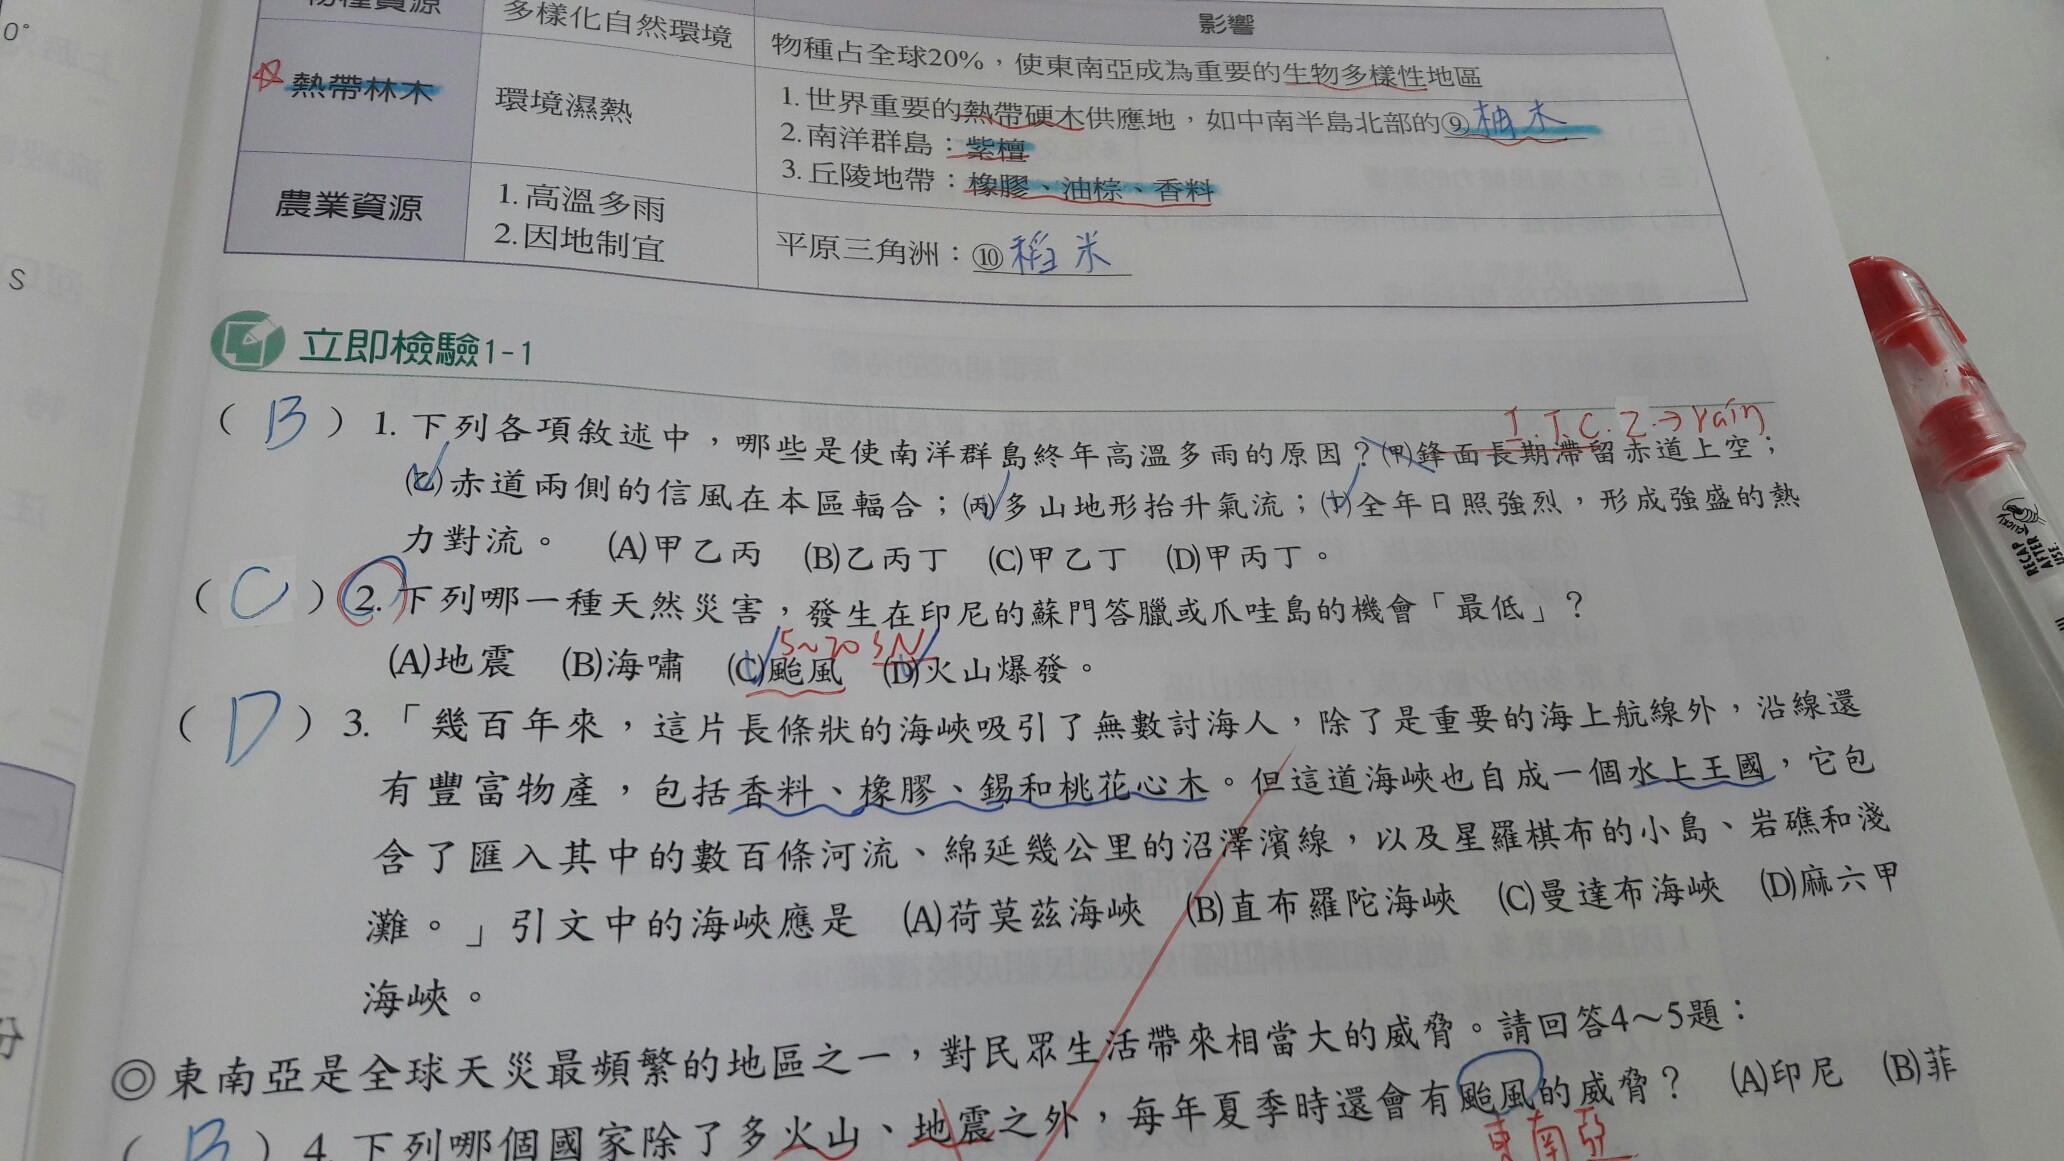 0°
S
物種資源
多樣化自然環境
影響
物種占全球20%,使東南亞成為重要的生物多樣性地區
熱帶林木
環境濕熱
1.世界重要的熱帶硬木供應地,如中南半島北部的⑨柚木
2.南洋群島:紫檀
3.丘陵地帶:橡膠、油棕、香料
農業資源
1.高溫多雨
2.因地制宜
平原三角洲:⑩稻米
立即檢驗1-1
I.T.C.Z→rain
(B)1.下列各項敘述中,哪些是使南洋群島終年高溫多雨的原因?(甲)鋒面長期滯留赤道上空;
(乙)赤道兩側的信風在本區輻合;(丙)多山地形抬升氣流;(丁)全年日照強烈,形成強盛的熱
力對流。 (A)甲乙丙 (B)乙丙丁 (C)甲乙丁 (D)甲丙丁。
(C)2.下列哪一種天然災害,發生在印尼的蘇門答臘或爪哇島的機會「最低」?
5~20 SN
(A)地震 (B)海嘯 (C)颱風 (D)火山爆發。
(D)3.「幾百年來,這片長條狀的海峽吸引了無數討海人,除了是重要的海上航線外,沿線還
有豐富物產,包括香料、橡膠、錫和桃花心木。但這道海峽也自成一個水上王國,它包
含了匯入其中的數百條河流、綿延幾公里的沼澤濱線,以及星羅棋布的小島、岩礁和淺
灘。」引文中的海峽應是 (A)荷莫茲海峽 (B)直布羅陀海峽 (C)曼達布海峽 (D)麻六甲
海峽。
◎東南亞是全球天災最頻繁的地區之一,對民眾生活帶來相當大的威脅。請回答4~5題:
(B)4.下列哪個國家除了多火山、地震之外,每年夏季時還會有颱風的威脅? (A)印尼 (B)菲
東南亞
RECAP
AFTER
USE.